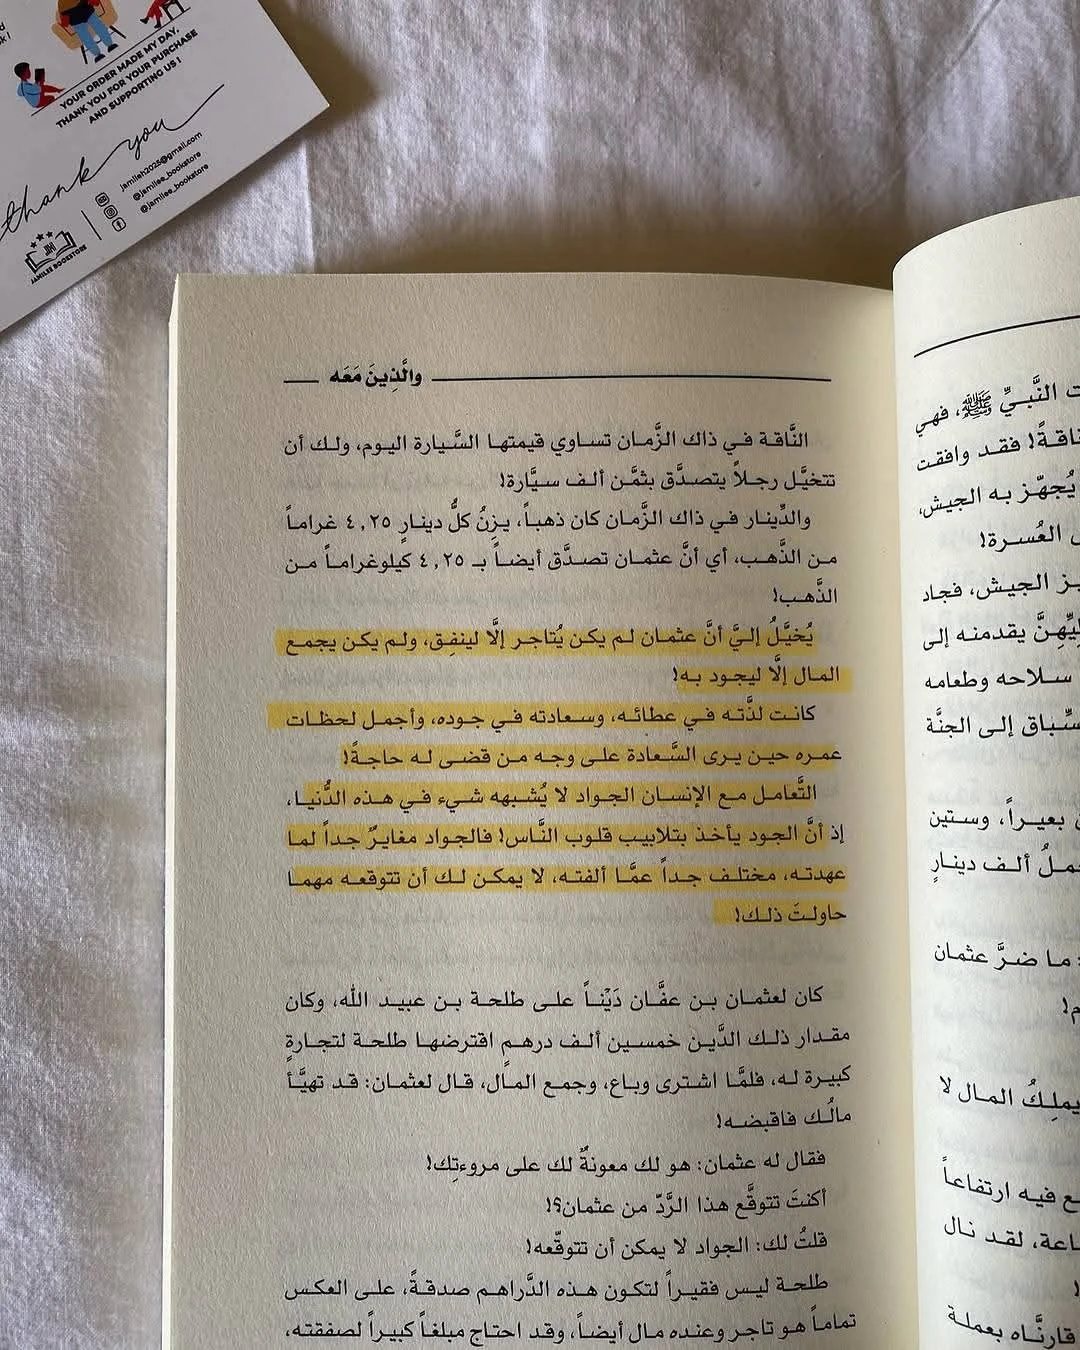 YOUR ORDER MADE MY DAY,
THANK YOU FOR YOUR PURCHASE
AND SUPPORTING US !
thank you
jamileh2025@gmail.com
@jamilee_bookstore
@jamilee_bookstore
JAMILEE BOOKSTORE
والَّذِينَ مَعَه
النَّاقة في ذاك الزَّمان تساوي قيمتها السَّيارة اليوم، ولك أن
تتخيَّل رجلاً يتصدَّق بثمَّن ألف سيَّارة!
والدِّينار في ذاك الزَّمان كان ذهباً، يزِنُ كلُّ دينارٍ ٤,٢٥ غراماً
من الذَّهب، أي أنَّ عثمان تصدَّق أيضاً بـ ٤,٢٥ كيلوغراماً من
الذَّهب!
يُخيَّلُ إليَّ أنَّ عثمان لم يكن يُتاجر إلَّا لينفِق، ولم يكن يجمع
المال إلَّا ليجود به!
كانت لذَّته في عطائه، وسعادته في جوده، وأجمل لحظات
عمره حين يرى السَّعادة على وجه من قضى له حاجةً!
التَّعامل مع الإنسان الجواد لا يُشبهه شيء في هذه الدُّنيا،
إذ أنَّ الجود يأخذ بتلابيب قلوب النَّاس! فالجواد مغايرٌ جداً لما
عهدته، مختلف جداً عمَّا ألفته، لا يمكن لك أن تتوقعه مهما
حاولتَ ذلك!
كان لعثمان بن عفَّان دَيْناً على طلحة بن عبيد الله، وكان
مقدار ذلك الدَّين خمسين ألف درهم اقترضها طلحة لتجارةٍ
كبيرة له، فلمَّا اشترى وباع، وجمع المال، قال لعثمان: قد تهيَّأ
مالُك فاقبضه!
فقال له عثمان: هو لك معونةٌ لك على مروءتِك!
أكنتَ تتوقَّع هذا الرَّدّ من عثمان؟!
قلتُ لك: الجواد لا يمكن أن تتوقّعه!
طلحة ليس فقيراً لتكون هذه الدَّراهم صدقةً، على العكس
تماماً هو تاجر وعنده مال أيضاً، وقد احتاج مبلغاً كبيراً لصفقته،
النَّبيِّ ﷺ، فهي
فقد وافقت
يُجهّز به الجيش،
العُسرة!
الجيش، فجاد
يقدمنه إلى
سلاحه وطعامه
إلى الجنَّة
بعيراً، وستين
ألف دينارٍ
ما ضرَّ عثمان
يملِكُ المال لا
فيه ارتفاعاً
لقد نال
قارنَّاه بعملة